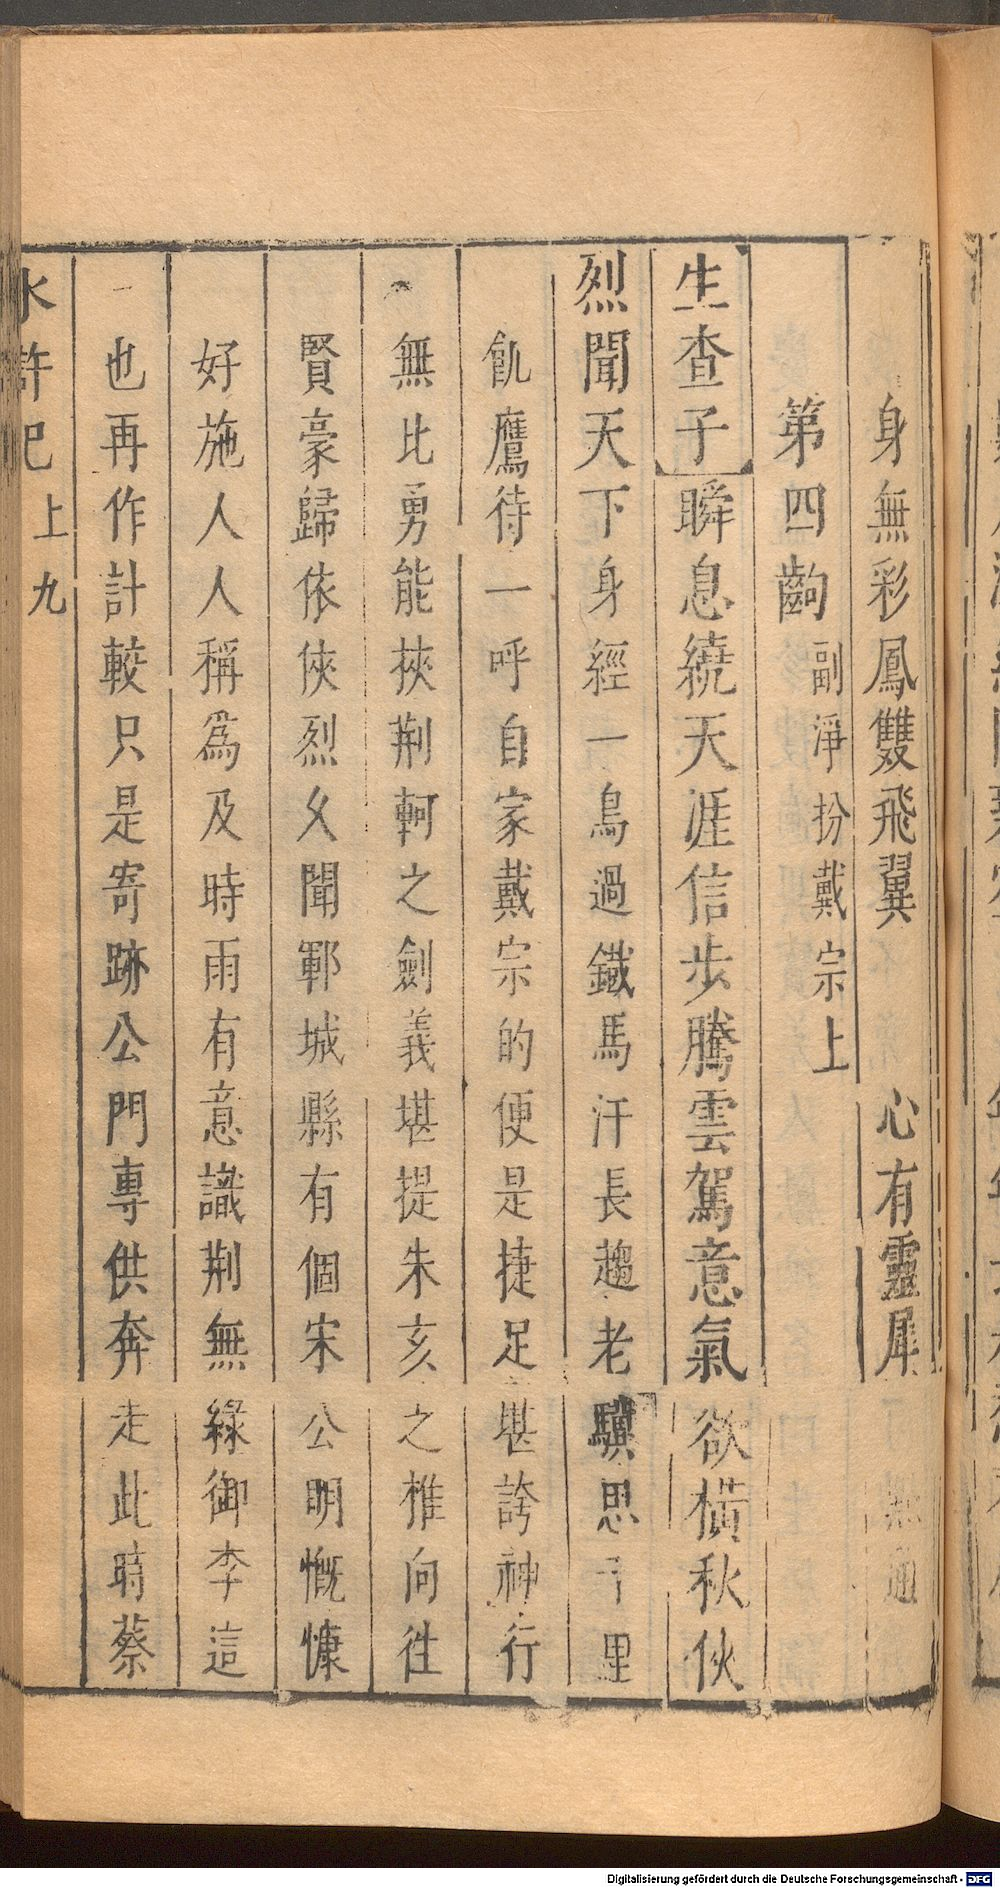 身無彩鳳雙飛翼　心有靈犀一點通
第四齣 副淨扮戴宗上
生查子 瞬息繞天涯信步騰雲駕意氣欲橫秋伙
烈聞天下身經一鳥過鐵馬汗長趨老驥思千里
飢鷹待一呼自家戴宗的便是捷足堪誇神行
無比勇能挾荆軻之劍義堪提朱亥之椎向徃
賢豪歸依俠烈久聞鄆城縣有個宋公明慨慷
好施人人稱爲及時雨有意識荆無緣御李這
也再作計較只是寄跡公門專供奔走此時蔡
水滸記 上 九
Digitalisierung gefördert durch die Deutsche Forschungsgemeinschaft - DFG